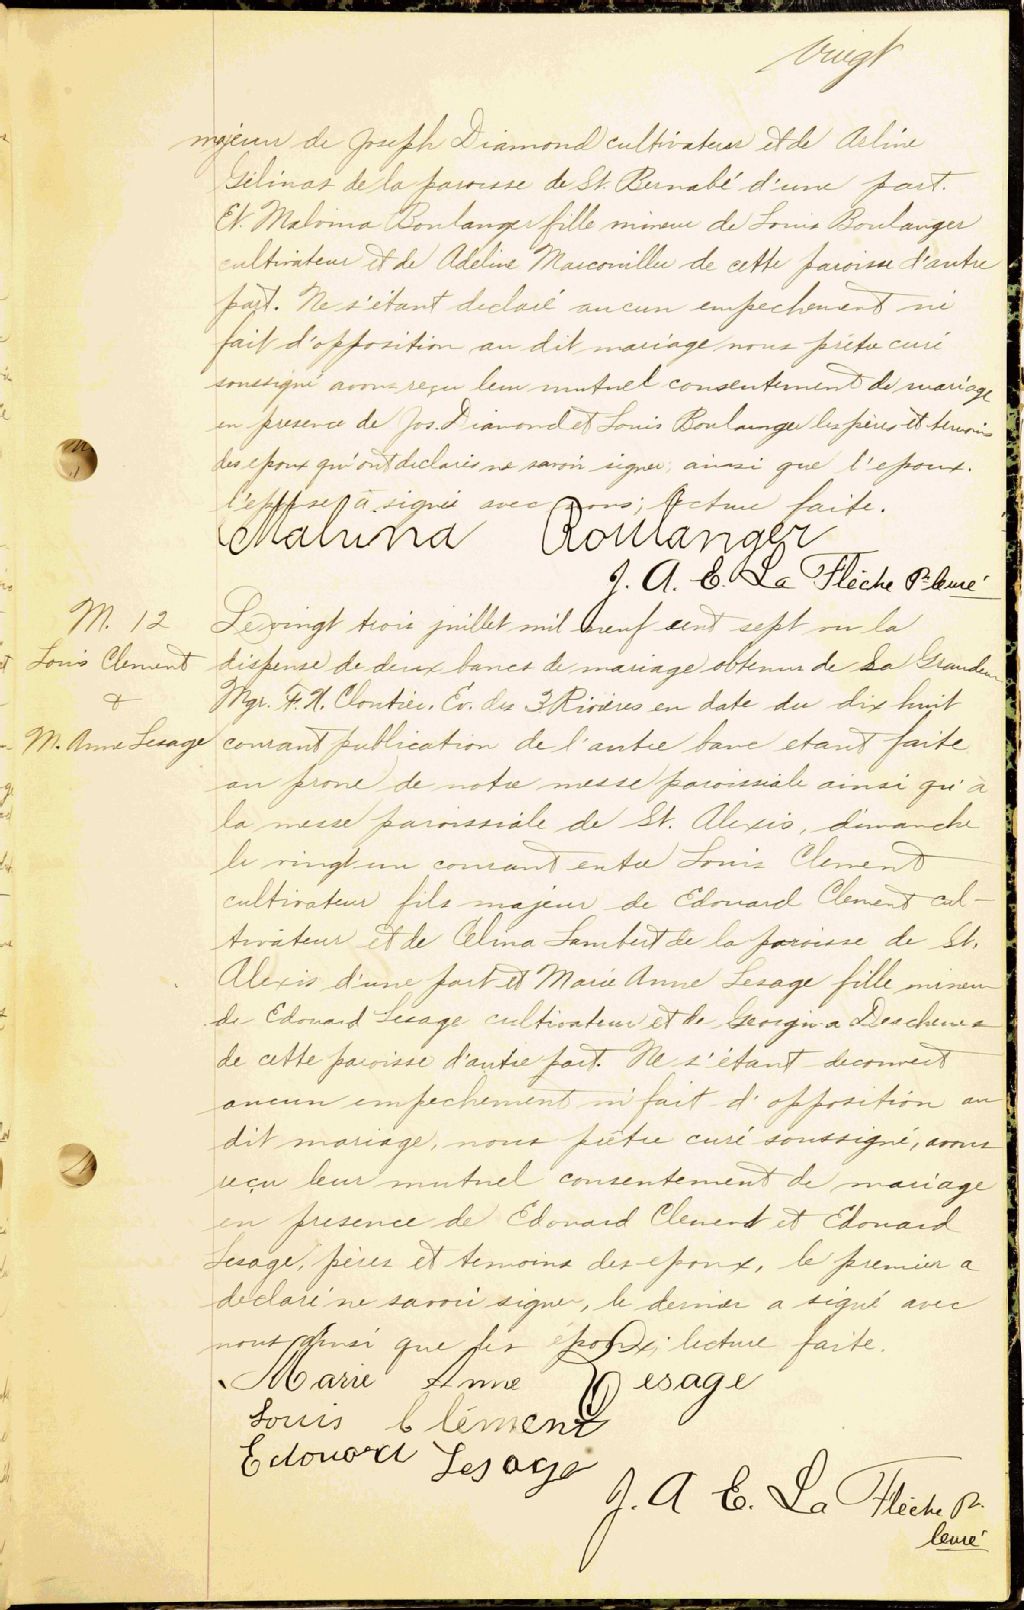 Vingt
majeur de Joseph Diamond cultivateur et de Arline
Gélinas de la paroisse de St. Barnabé d'une part.
Et Malvina Boulanger fille mineure de Louis Boulanger
cultivateur et de Adeline Marcouiller de cette paroisse d'autre
part. Ne s'étant declaré aucun empechement ni
fait d'opposition au dit mariage nous prêtre curé
soussigné avons reçu leur mutuel consentement de mariage
en presence de Jos. Diamond et Louis Boulanger les pères et temoins
des epoux qu'ont declarés ne savoir signer, ainsi que l'epoux.
l'epouse a signé avec nous; lecture faite.
Malvina Boulanger
J. A. E. La Flèche Ptr. Curé
M. 12
Louis Clement
&
M. Anne Lesage
Le vingt trois juillet mil neuf cent sept vu la
dispense de deux bancs de mariage obtenue de Sa Grandeur
Mgr. F. X. Cloutier. Év. des 3 Rivières en date du dix huit
courant publication de l'autre banc etant faite
au prone de notre messe paroissiale ainsi qu'à
la messe paroissiale de St. Alexis, dimanche
le vingt un courant entre Louis Clement
cultivateur fils majeur de Edouard Clement cul-
tivateur et de Celina Lambert de la paroisse de St.
Alexis d'une part et Marie Anne Lesage fille mineure
de Edouard Lesage cultivateur et de Georgina Deschenes
de cette paroisse d'autre part. Ne s'étant decouvert
aucun empechement ni fait d'opposition au
dit mariage, nous prêtre curé soussigné, avons
reçu leur mutuel consentement de mariage
en presence de Edouard Clement et Edouard
Lesage, pères et temoins des epoux, le premier a
declaré ne savoir signer, le dernier a signé avec
nous ainsi que les époux; lecture faite.
Marie Anne Lesage
Louis Clément
Edouard Lesage
J. A. E. La Flèche Ptr.
Curé